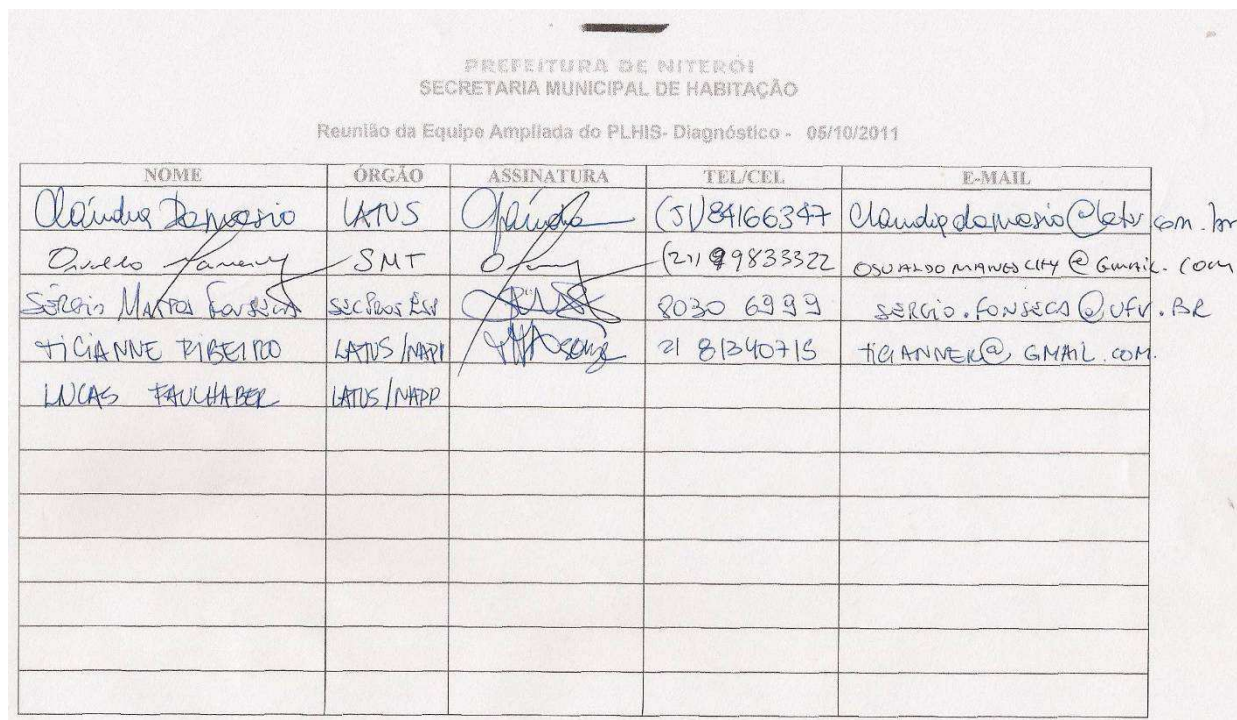 PREFEITURA DE NITERÓI
SECRETARIA MUNICIPAL DE HABITAÇÃO
Reunião da Equipe Ampliada do PLHIS- Diagnóstico - 05/10/2011
NOME ÓRGÃO ASSINATURA TEL/CEL E-MAIL
Cláudia Damasio LATUS Cláudia (51) 84166347 claudiadamasio@latus.com.br
SMT (21) 99833322 @Gmail.com
SÉRGIO MATTOS FONSECA 8030 6999 SERGIO.FONSECA@UFV.BR
TICIANNE RIBEIRO LATUS/NAPP 21 81340715 TICIANNER@GMAIL.COM.
LUCAS FAULHABER LATUS/NAPP